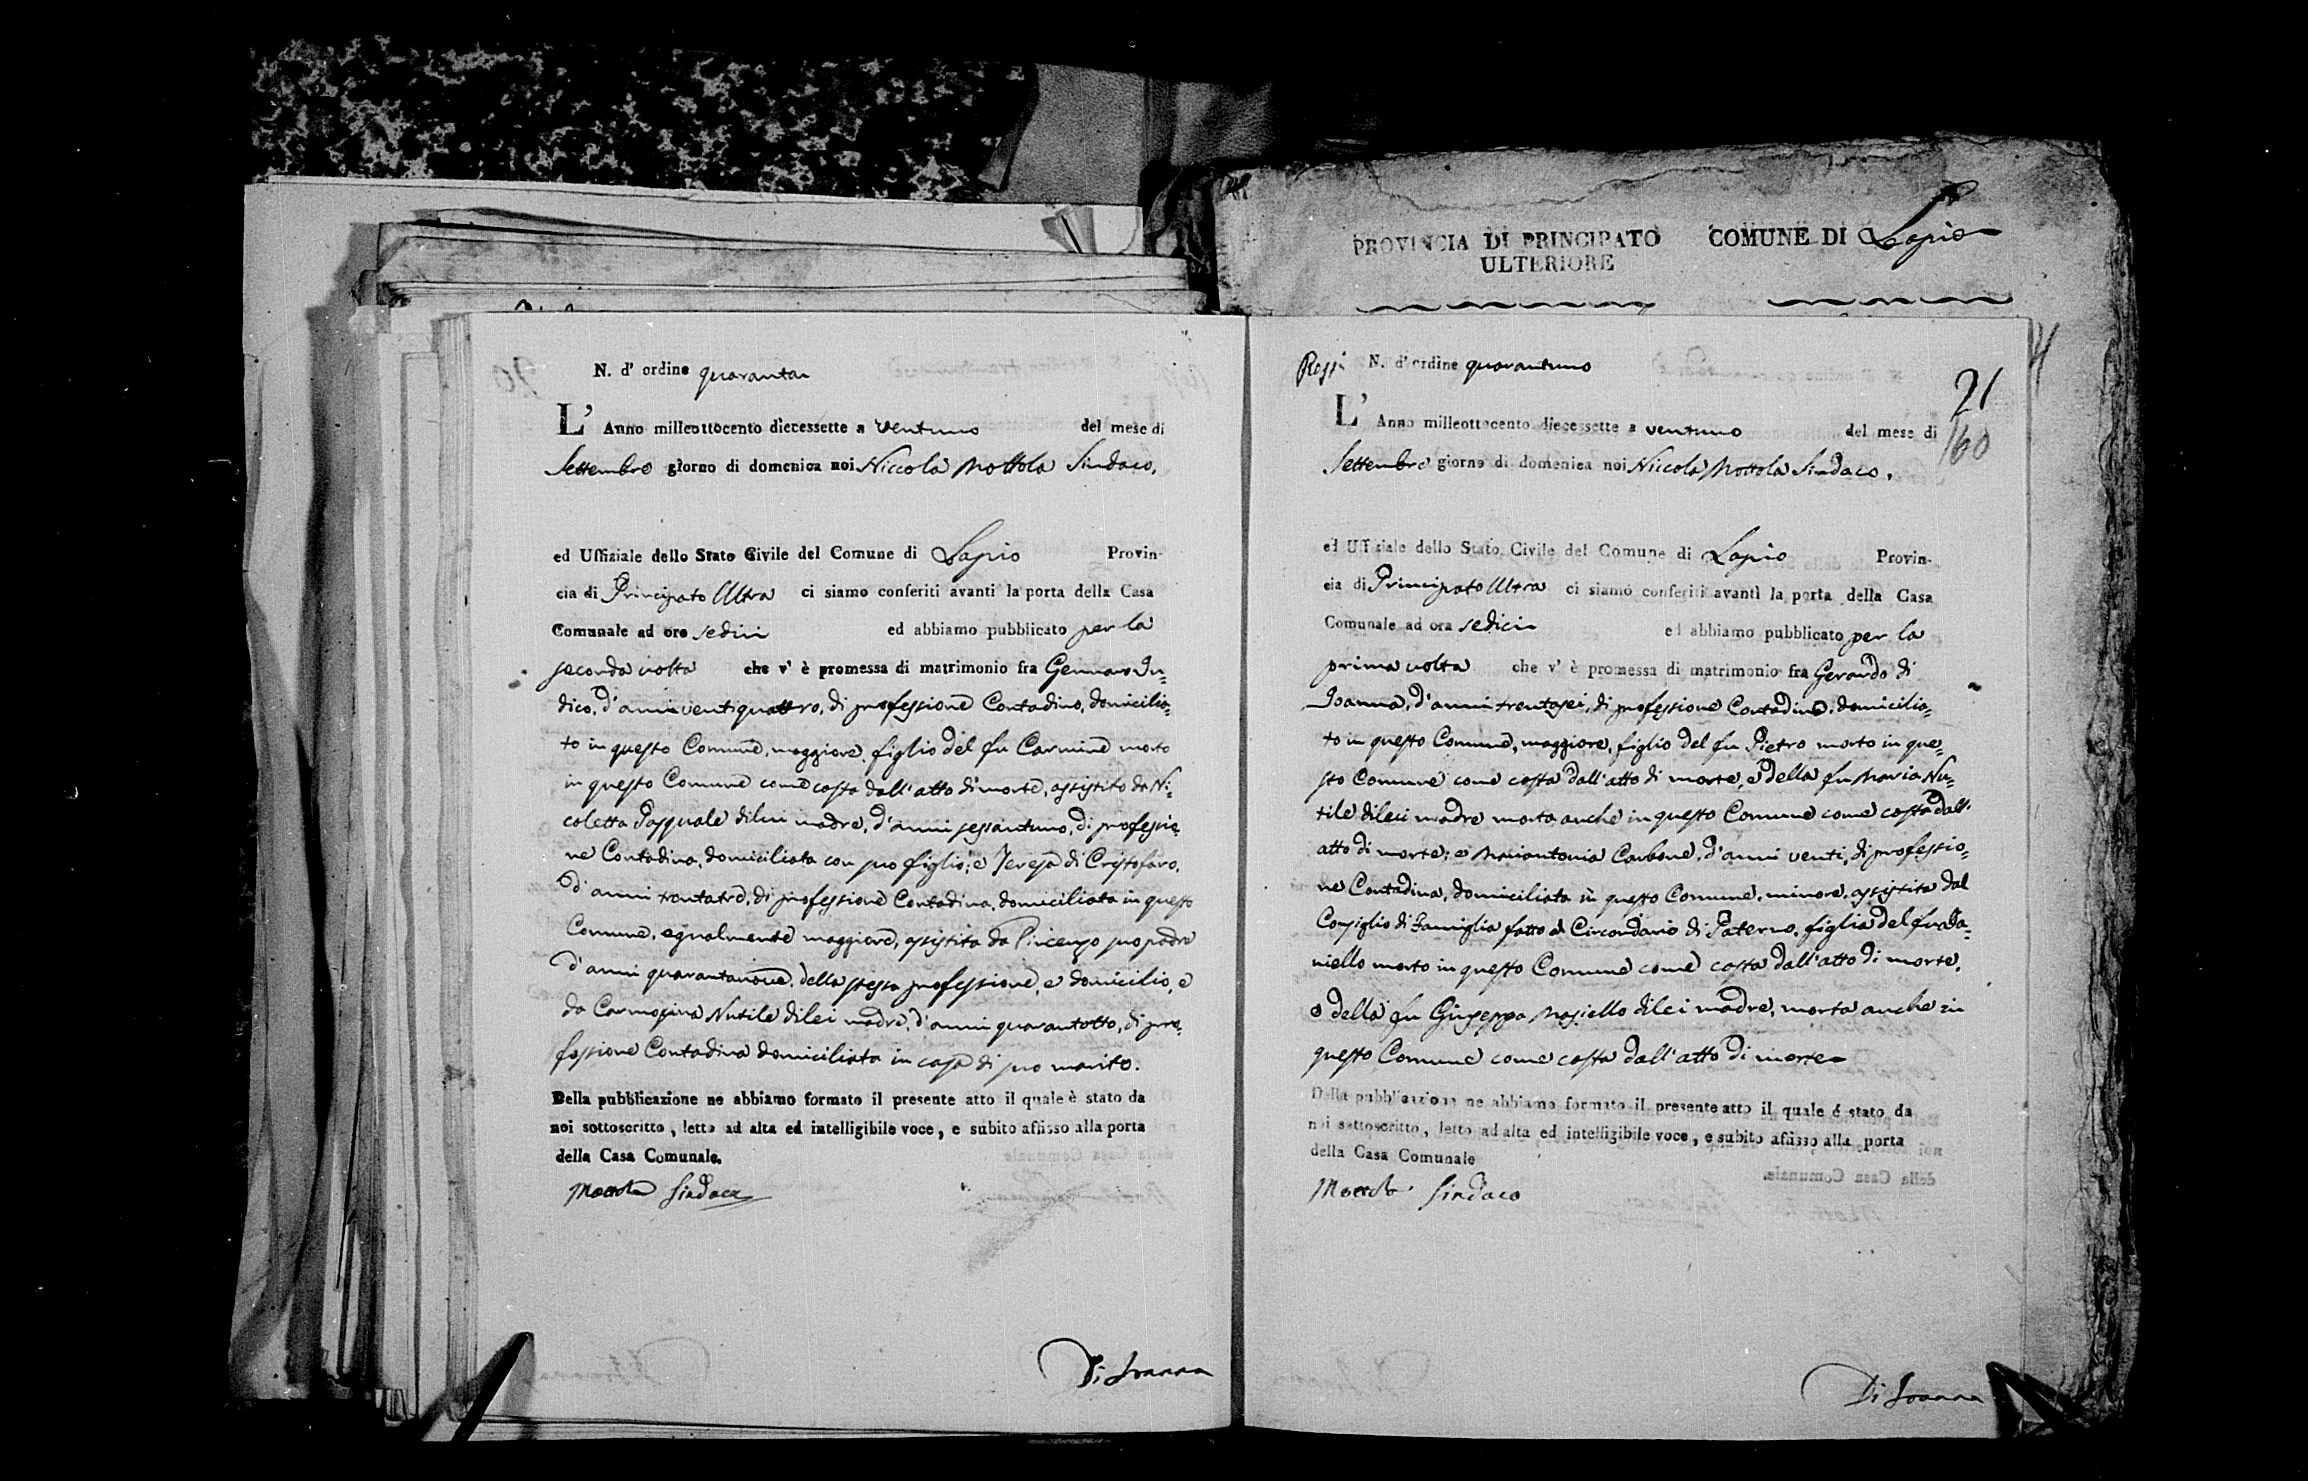 PROVINCIA DI PRINCIPATO ULTERIORE
COMUNE DI Lapio
N. d' ordine quaranta
L' Anno milleottocento diecessette a ventuno del mese di
Settembre giorno di domenica noi Niccola Mottola Sindaco,
ed Uffiziale dello Stato Civile del Comune di Lapio Provin-
cia di Principato Ultra ci siamo conferiti avanti la porta della Casa
Comunale ad ore sedici ed abbiamo pubblicato per la
seconda volta che v' è promessa di matrimonio fra Gennaro In=
dico, d'anni ventiquattro, di professione Contadino, domicilia=
to in questo Comune, maggiore, figlio del fu Carmine morto
in questo Comune come costa dall'atto di morte, assistito da Ni=
coletta Pasquale di lui madre, d'anni sessantuno, di professio=
ne Contadina, domiciliata con suo figlio; e Teresa di Cristofaro,
d'anni trentatre, di professione Contadina, domiciliata in questo
Comune, egualmente maggiore, assistita da Vincenzo suo padre
d'anni quarantanove, della stessa professione, e domicilio, e
da Carmosina Nutile di lei madre, d'anni quarantotto, di pro=
fessione Contadina domiciliata in casa di suo marito.
Della pubblicazione ne abbiamo formato il presente atto il quale è stato da
noi sottoscritto, letto ad alta ed intelligibile voce, e subito affisso alla porta
della Casa Comunale.
Mottola Sindaco
Di Joanna
N. d' ordine quarantuno
21
160
L' Anno milleottocento diecessette a ventuno del mese di
Settembre giorno di domenica noi Niccola Mottola Sindaco,
ed Uffiziale dello Stato Civile del Comune di Lapio Provin-
cia di Principato Ultra ci siamo conferiti avanti la porta della Casa
Comunale ad ora sedici ed abbiamo pubblicato per la
prima volta che v' è promessa di matrimonio fra Gerardo di
Joanna, d'anni trentasei, di professione Contadino, domicilia=
to in questo Comune, maggiore, figlio del fu Pietro morto in que=
sto Comune come costa dall'atto di morte, e della fu Maria Nu=
tile di lei madre morta anche in questo Comune come costa dall'
atto di morte; e Mariantonia Carbone, d'anni venti, di professio=
ne Contadina, domiciliata in questo Comune, minore, assistita dal
Consiglio di Famiglia fatto al Circondario di Paterno, figlia del fu Da=
niello morto in questo Comune come costa dall'atto di morte,
e della fu Giuseppa Masiello di lei madre, morta anche in
questo Comune come costa dall'atto di morte
Della pubblicazione ne abbiamo formato il presente atto il quale é stato da
noi sottoscritto, letto ad alta ed intelligibile voce, e subito affisso alla porta
della Casa Comunale
Mottola Sindaco
Di Joanna